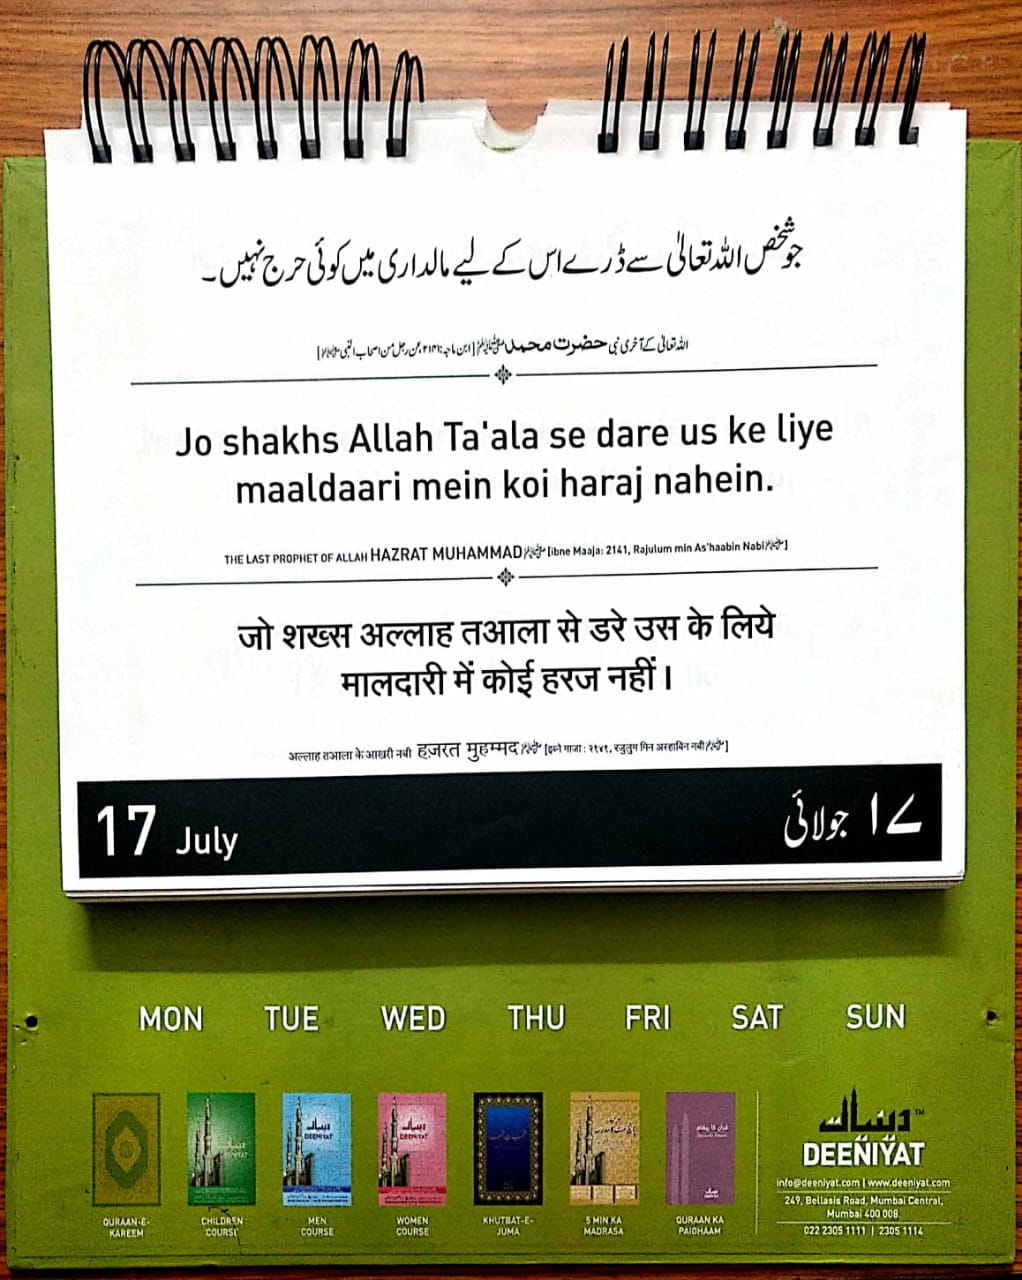 جو شخص اللہ تعالٰی سے ڈرے اس کے لیے مالداری میں کوئی حرج نہیں۔
اللہ تعالیٰ کے آخری نبی حضرت محمد ﷺ [ابن ماجہ: ۲۱۴۱، عن رجل من اصحاب النبی ﷺ]
Jo shakhs Allah Ta'ala se dare us ke liye
maaldaari mein koi haraj nahein.
THE LAST PROPHET OF ALLAH HAZRAT MUHAMMAD ﷺ [ibne Maaja: 2141, Rajulum min As'haabin Nabi ﷺ]
जो शख्स अल्लाह तआला से डरे उस के लिये
मालदारी में कोई हरज नहीं।
अल्लाह तआला के आखरी नबी हज़रत मुहम्मद ﷺ [इब्ने माजा : २१४१, रजुलुम मिन अस्हाबिन नबी ﷺ]
17 July
۱۷ جولائی
MON TUE WED THU FRI SAT SUN
دینیات TM
DEENIYAT
info@deeniyat.com | www.deeniyat.com
249, Bellasis Road, Mumbai Central,
Mumbai 400 008.
022 2305 1111 | 2305 1114
دینیات
DEENIYAT
دینیات
DEENIYAT
دینیات
DEENIYAT
قرآن کا پیغام
QURAAN-E-
KAREEM
CHILDREN
COURSE
MEN
COURSE
WOMEN
COURSE
KHUTBAT-E-
JUMA
5 MIN KA
MADRASA
QURAAN KA
PAIGHAAM